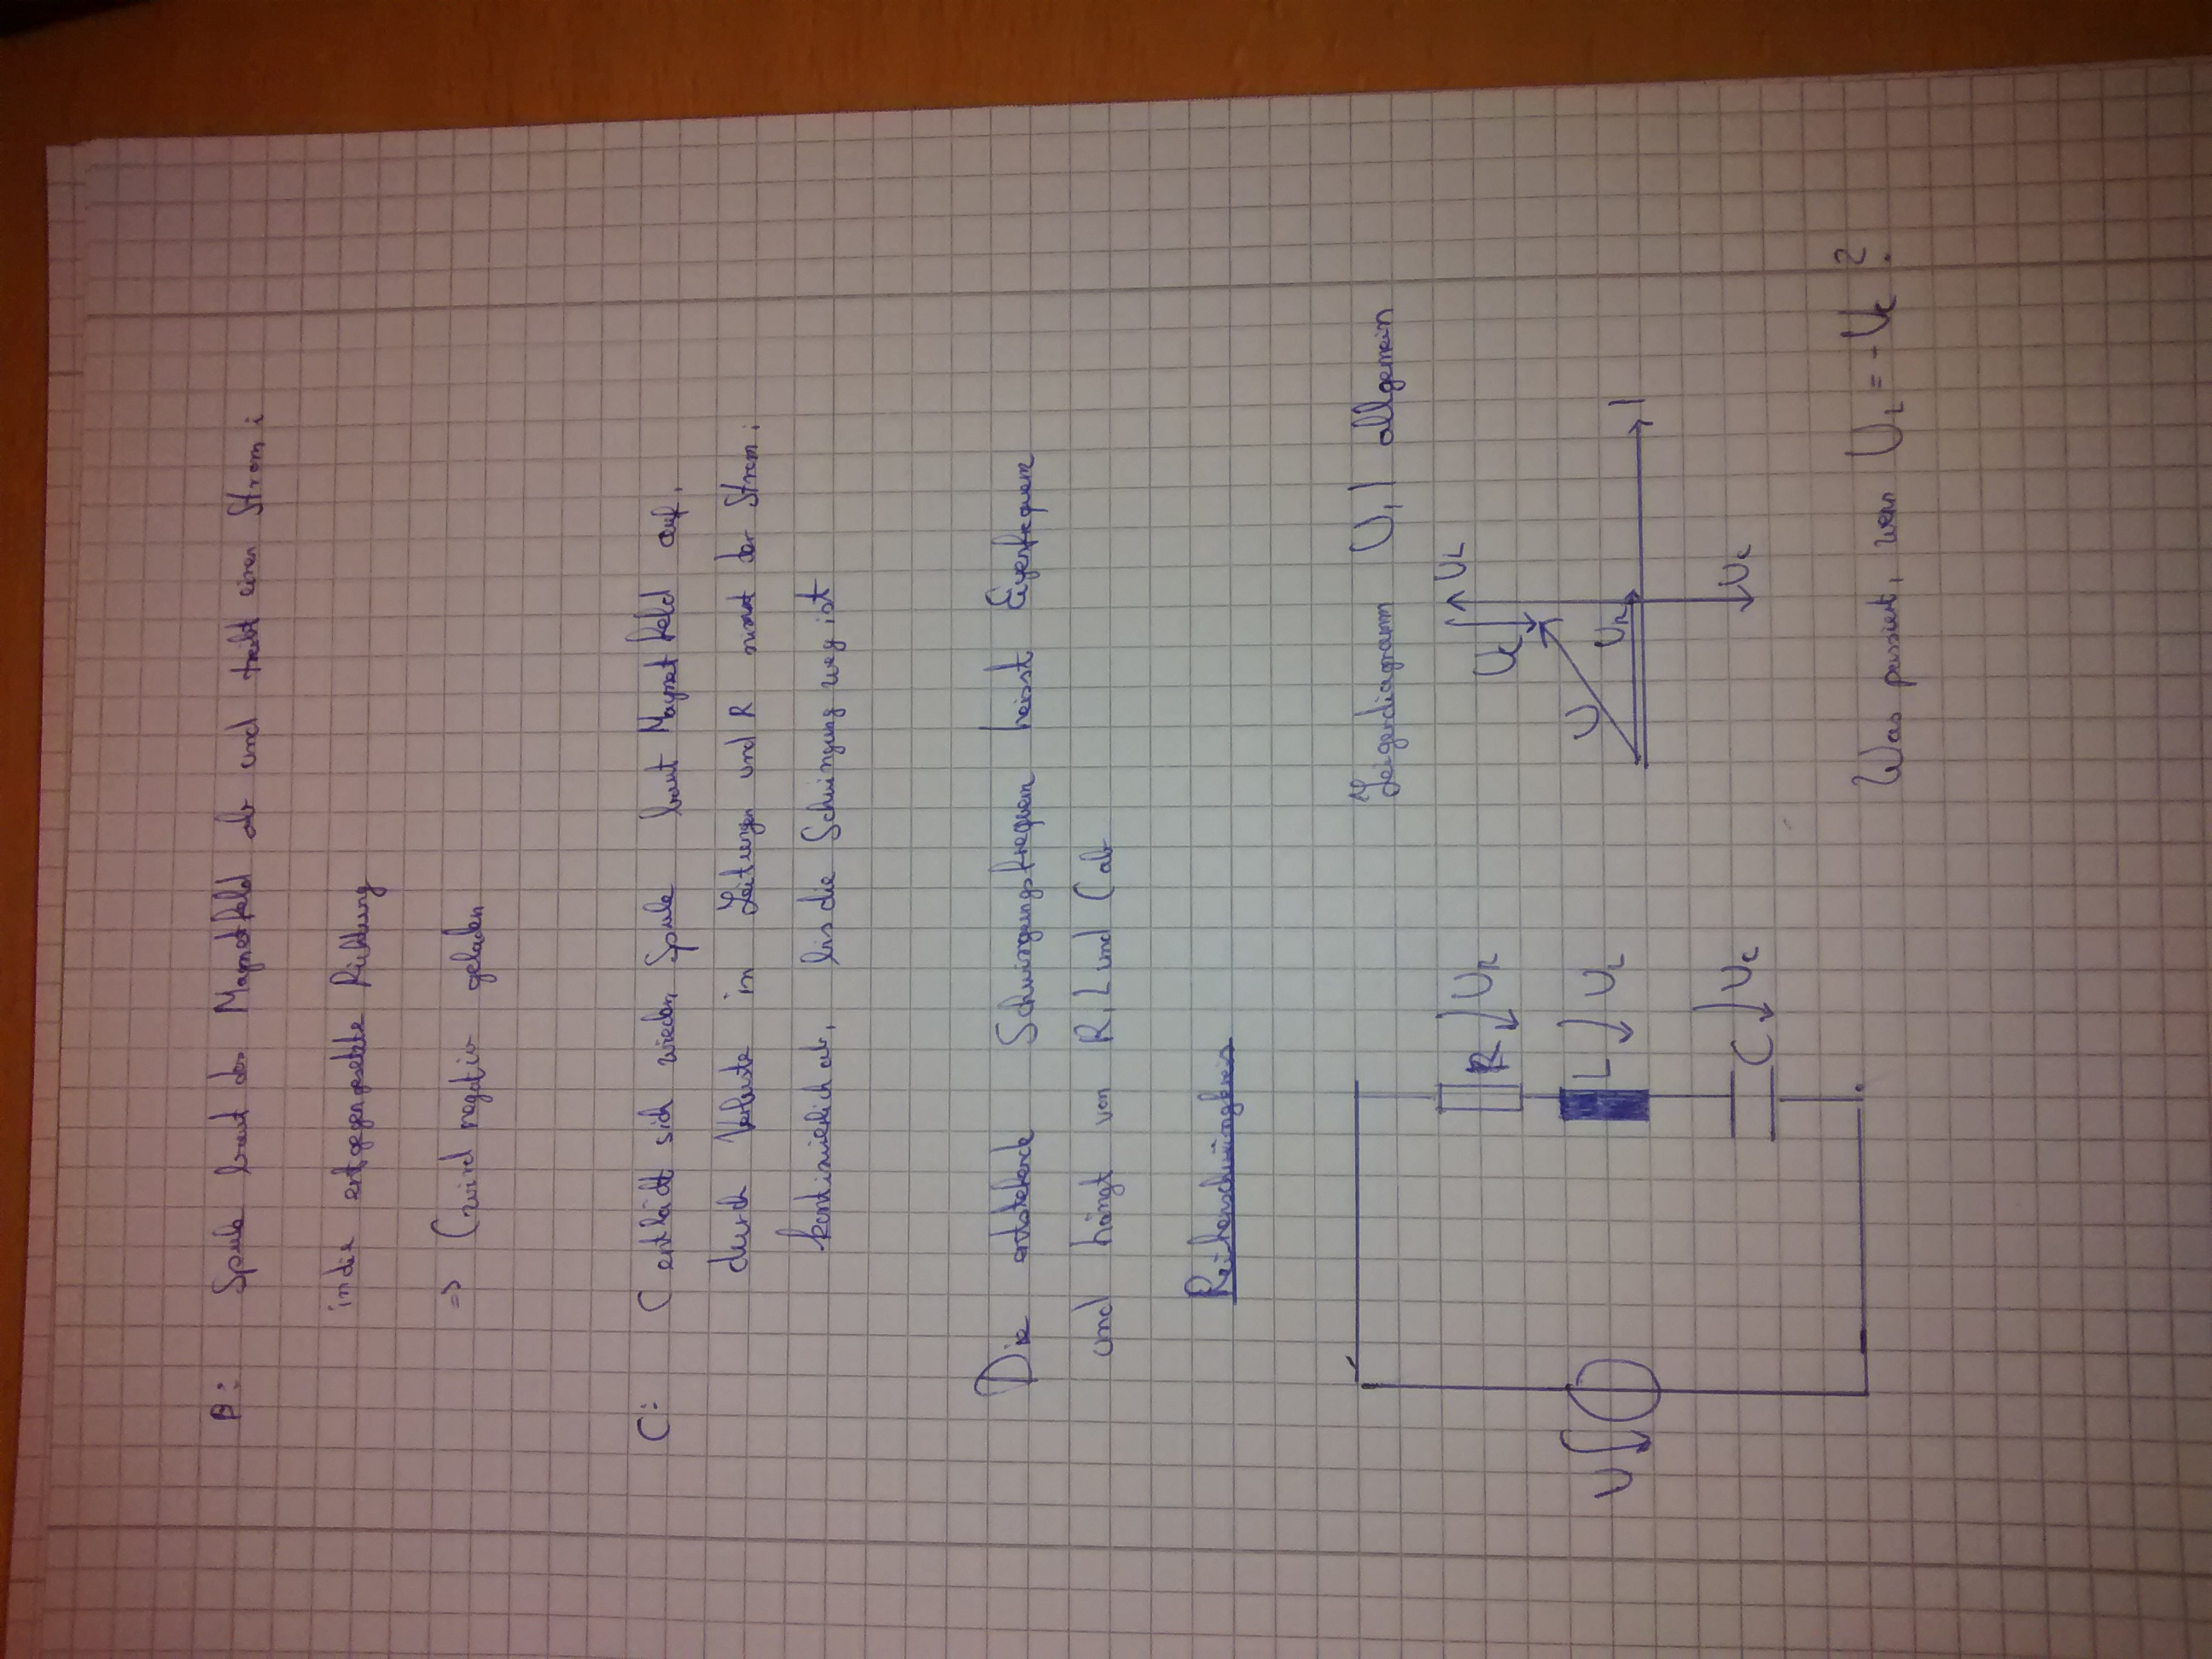 B: Spule baut das Magnetfeld ab und treibt einen Strom i
in die entgegengesetzte Richtung
=> C wird negativ geladen
C: C entlädt sich wieder, Spule baut Magnetfeld auf,
durch Verluste in Leitungen und R nimmt der Strom i
kontinuierlich ab, bis die Schwingung weg ist
Die entstehende Schwingungsfrequenz heisst Eigenfrequenz
und hängt von R, L und C ab
Reihenschwingkreis
Zeigerdiagramm U, I allgemein
U
R
UR
L
UL
C
UC
UL
UC
U
UR
I
UC
Was passiert, wenn UL = -UC?